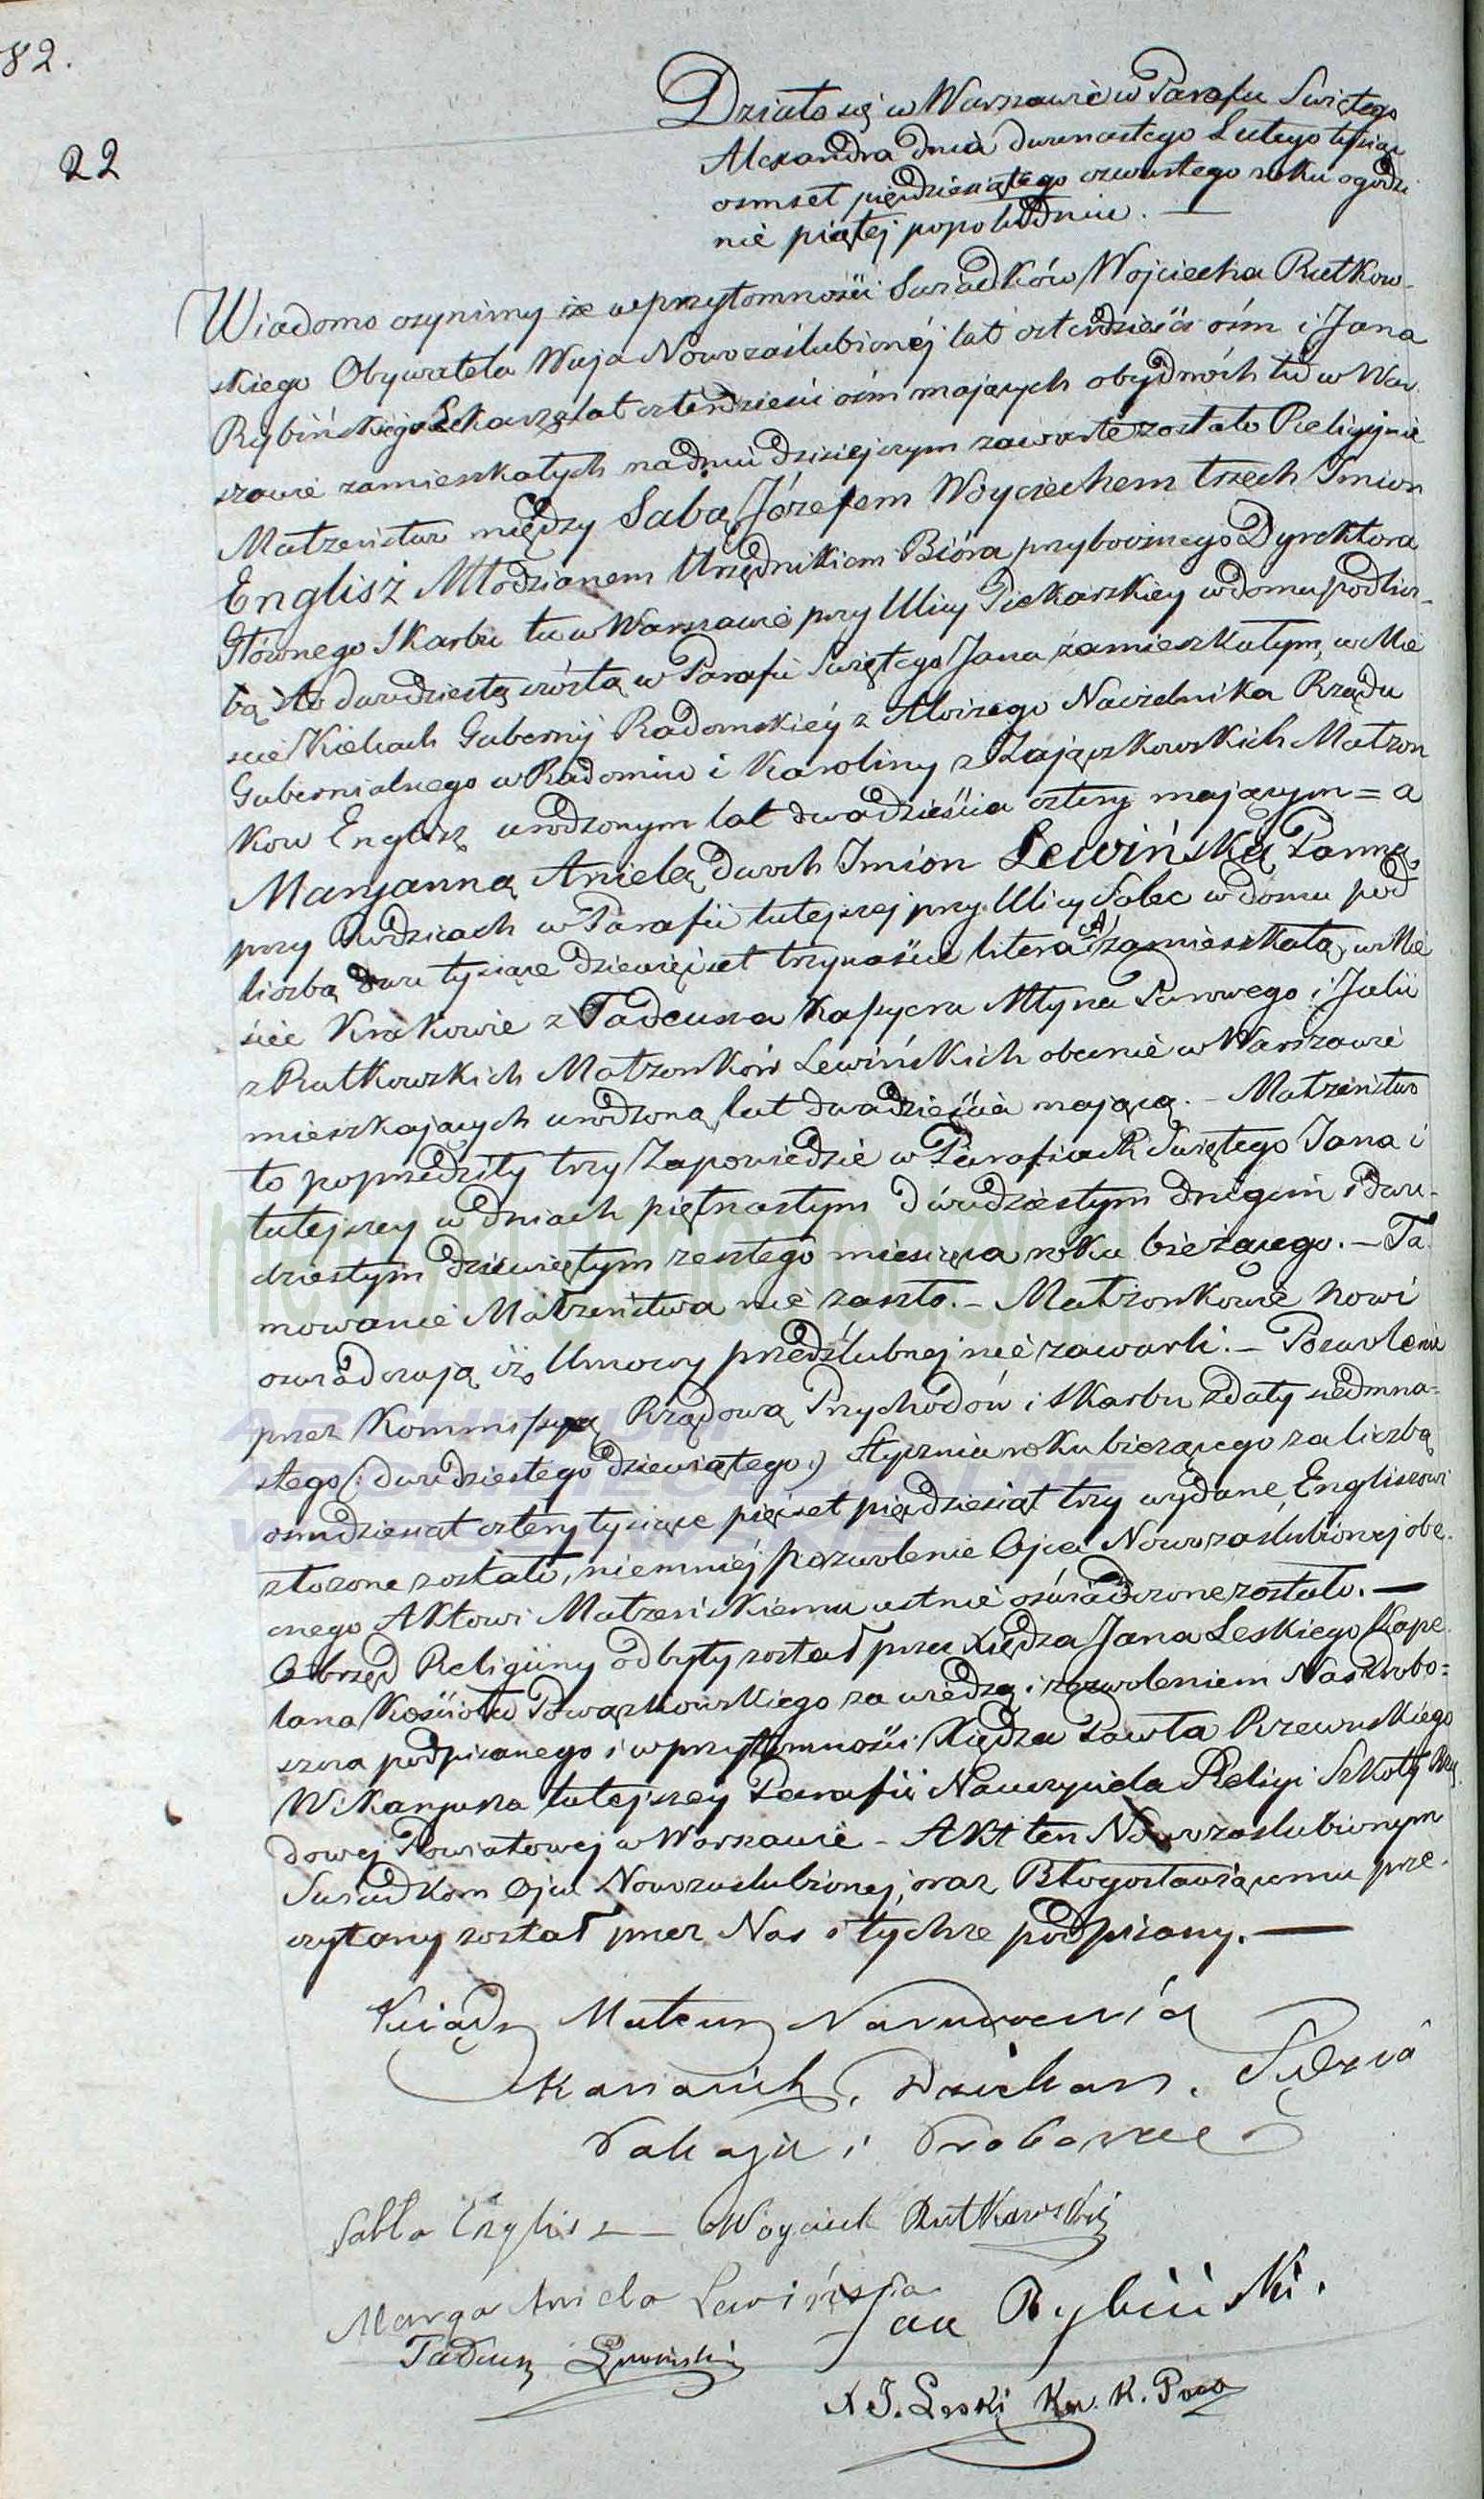 82.
22
Działo się w Warszawie w Parafii Swiętego
Alexandra dnia dwunastego Lutego tysiąc
osmset pięćdziesiątego czwartego roku o godzi
nie piątej popołudniu. —
Wiadomo czynimy iż w przytomności Swiadków Wojciecha Rutkow-
skiego Obywatela Wuja Nowozaślubionéj lat czterdzieści ośm i Jana
Rybińskiego Lekarza lat czterdzieści ośm mających obydwóch tu w War
szawie zamieszkałych na dniu dzisiejszym zawarte zostało Religijnie
Małżeństwo między Sabą Józefem Woyciechem trzech Imion
Englisz Młodzianem Urzędnikiem Bióra przybocznego Dyrektora
Głównego Skarbu tu w Warszawie przy Ulicy Piekarskiey w domu pod licz-
bą sto dwudziestą szóstą w Parafii Swiętego Jana zamieszkałym, w Mie
ście Kielcach Gubernij Radomskiéy z Aloizego Naczelnika Rządu
Gubernialnego w Radomiu i Karoliny z Zajączkowskich Małżon
kow Englisz urodzonym lat dwadzieścia cztery mającym = a
Maryanną Anielą dwóch Imion Lewińską Panną
przy Rodzicach w Parafii tutejszej przy Ulicy Solec w domu pod
liczbą dwa tysiące dziewięćset trzynaście litera A zamieszkałą, w Mie
ście Krakowie z Tadeusza Kassyera Młyna Parowego i Julii
z Rutkowskich Małżonków Lewińskich obecnie w Warszawie
mieszkających urodzoną lat dwadzieścia mającą. – Małżeństwo
to poprzedziły trzy Zapowiedzie w Parafiach Swiętego Jana i
tutejszey w dniach piętnastym dwudziestym drugim i dwu-
dziestym dziewiętym zeszłego miesiąca roku bieżącego. – Ta
mowanie Małżeństwa nie zaszło. – Małżonkowie nowi
oswiadczają iż Umowy przedślubnej nie zawarli. – Pozwolenie
przez Kommissyą Rządową Przychodów i Skarbu z daty siedmna-
stego (: dwudziestego dziewiątego :) Stycznia roku bieżącego za liczbą
osmdziesiat cztery tysiące pięćset pięćdziesiąt trzy wydane Engliszowi
złożone zostało, niemniéj pozwolenie Ojca Nowozaślubionej obe-
cnego Aktowi Małżeńskiemu ustnie oświadczone zostało. —
Obrzęd Religijny odbyty został przez Xiędza Jana Leskiego Kape-
lana Kościoła Powązkowskiego za wiedzą i zezwoleniem Nas Probo-
szcza podpisanego i w przytomności Xiędza Pawła Rzewuskiego
Wikaryusza tutejszey Parafii Nauczyciela Religii Szkoły Rzą
dowej Powiatowej w Warszawie – Akt ten Nowozaslubionym
Swiadkom Ojcu Nowozaslubionej, oraz Błogosławiącemu prze-
czytany został przez Nas i tychże podpisany. —
Ksiądz Mateusz
Kanonik, Dziekan, Sędzia
Pokoju i Proboszcz
Sabba Englisz — Woyciech Rutkowski
Marya Aniela Lewińska
Jan Rybiński.
Tadeusz Lewinski
X J. Leski K. Pow
ARCHIWUM
ARCHIDIECEZJALNE
WARSZAWSKIE